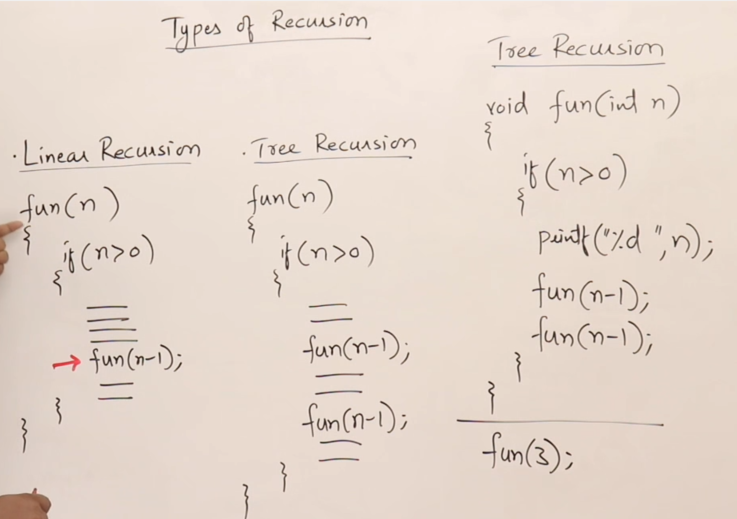 Types of Recursion
· Linear Recursion
fun(n)
{
if(n>0)
{
→ fun(n-1);
}
}
· Tree Recursion
fun(n)
{
if(n>0)
{
fun(n-1);
fun(n-1);
}
}
Tree Recursion
void fun(int n)
{
if(n>0)
{
printf("%d ",n);
fun(n-1);
fun(n-1);
}
}
fun(3);